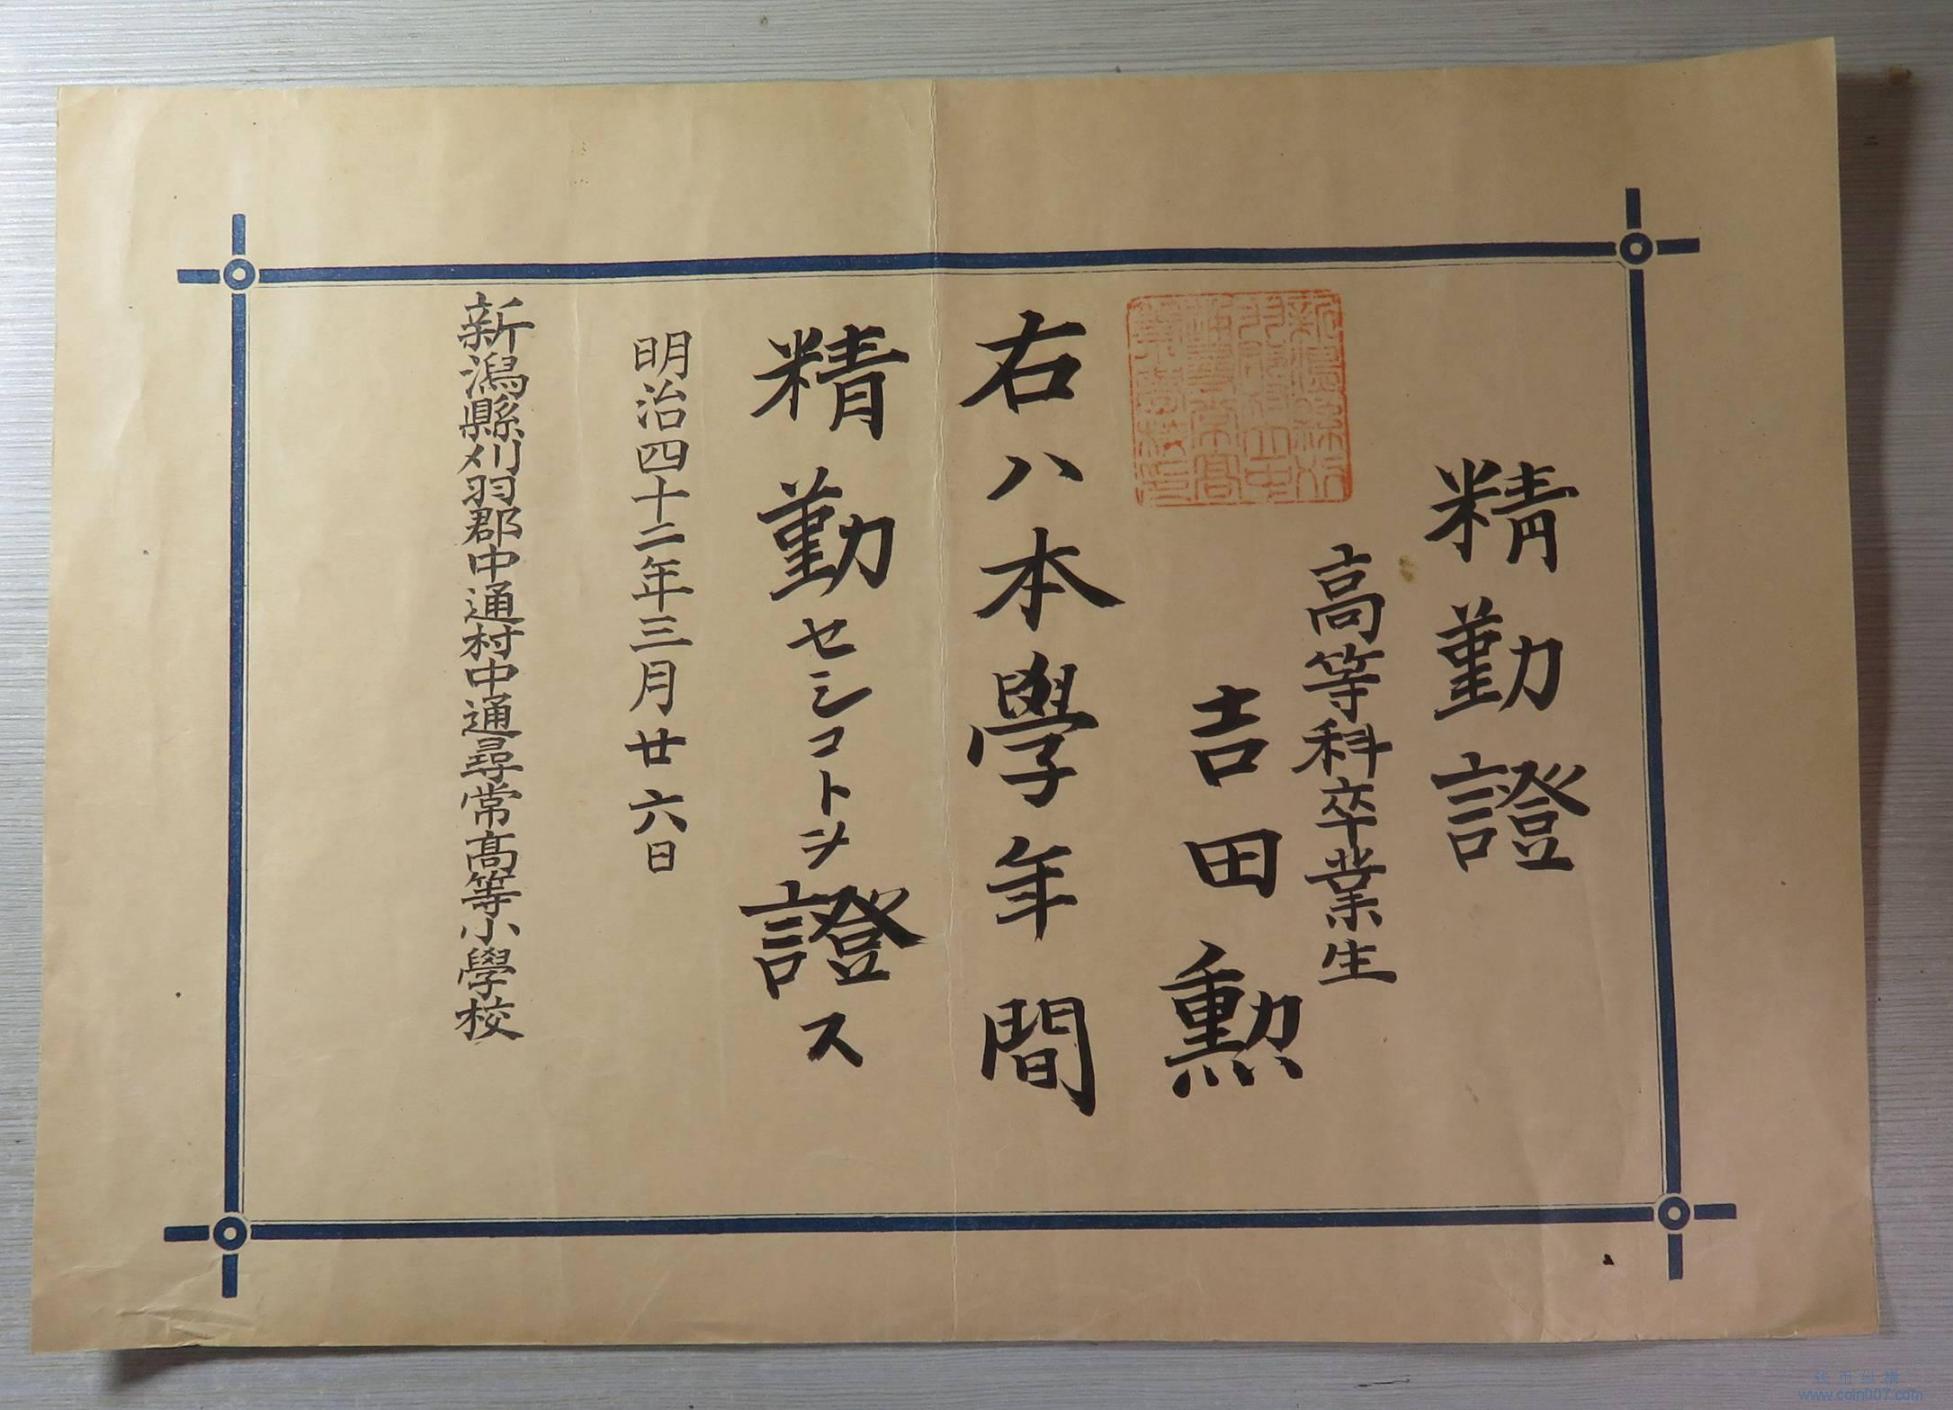 精勤證
高等科卒業生
吉田勲
右ハ本學年間
精勤セシコトヲ證ス
明治四十二年三月廿六日
新潟縣刈羽郡中通村中通尋常高等小學校
www.coin007.com